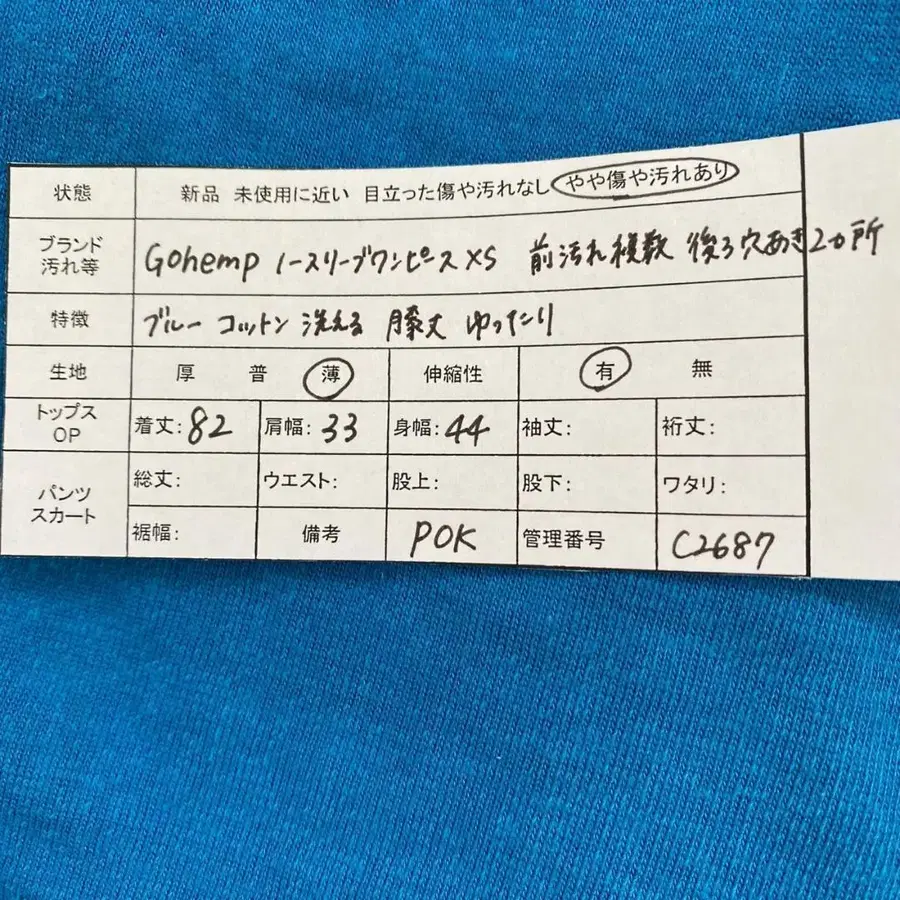 状態 新品 未使用に近い 目立った傷や汚れなし やや傷や汚れあり
ブランド 汚れ等 Gohemp ノースリーブワンピース XS 前汚れ複数 後ろ穴あき2ヵ所
特徴 ブルー コットン 洗える 膝丈 ゆったり
生地 厚 普 薄 伸縮性 有 無
トップス OP 着丈:82 肩幅:33 身幅:44 袖丈: 裄丈:
パンツ スカート 総丈: ウエスト: 股上: 股下: ワタリ:
裾幅: 備考 POK 管理番号 C2687